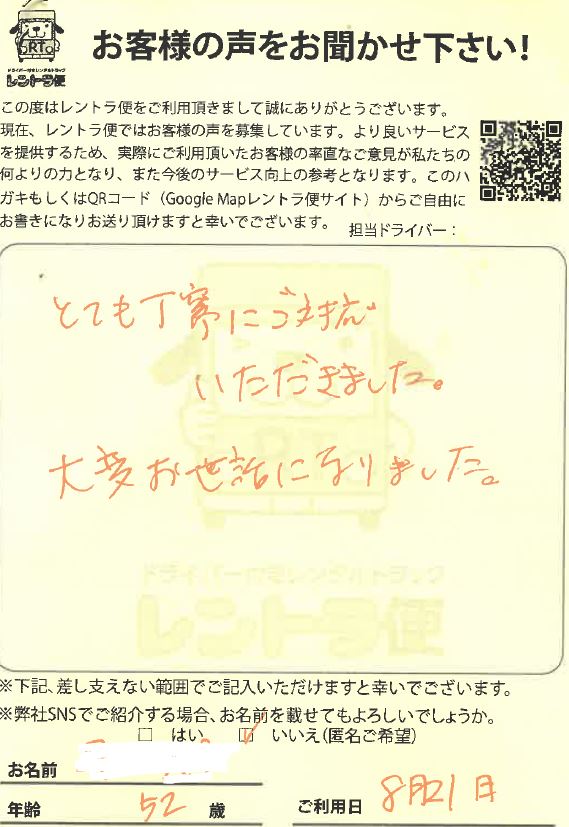 お客様の声をお聞かせ下さい!
RT
ドライバー付きレンタルトラック
レントラ便
この度はレントラ便をご利用頂きまして誠にありがとうございます。
現在、レントラ便ではお客様の声を募集しています。より良いサービス
を提供するため、実際にご利用頂いたお客様の率直なご意見が私たちの
何よりの力となり、また今後のサービス向上の参考となります。このハ
ガキもしくはQRコード（Google Mapレントラ便サイト）からご自由に
お書きになりお送り頂けますと幸いでございます。
担当ドライバー：
とても丁寧にご対応
いただきました。
大変お世話になりました。
ドライバー付きレンタルトラック
レントラ便
※下記、差し支えない範囲でご記入いただけますと幸いでございます。
※弊社SNSでご紹介する場合、お名前を載せてもよろしいでしょうか。
□ はい ☑ いいえ(匿名ご希望)
お名前
年齢 52 歳 ご利用日 8月21日